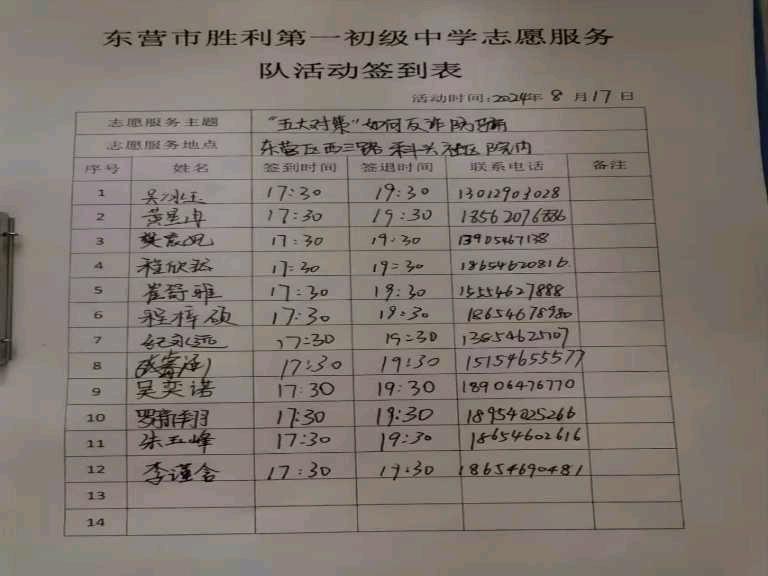 东营市胜利第一初级中学志愿服务
队活动签到表
活动时间:2024年 8 月 17 日
志愿服务主题 "五大对策"如何反诈防骗
志愿服务地点 东营区西三路 科兴社区院内
序号 姓名 签到时间 签退时间 联系电话 备注
1 吴冰玉 17:30 19:30 13012903028
2 17:30 19:30 18562076886
3 17:30 19:30 13905467138
4 程欣 17:30 19:30 18654620816
5 崔舒雅 17:30 19:30 15554627888
6 程梓硕 17:30 19:30 18654678980
7 纪永远 17:30 19:30 13854625107
8 17:30 19:30 15154655577
9 吴奕诺 17:30 19:30 18906476770
10 17:30 19:30 18954025266
11 朱玉峰 17:30 19:30 18654602616
12 李谨含 17:30 19:30 18654690481
13
14